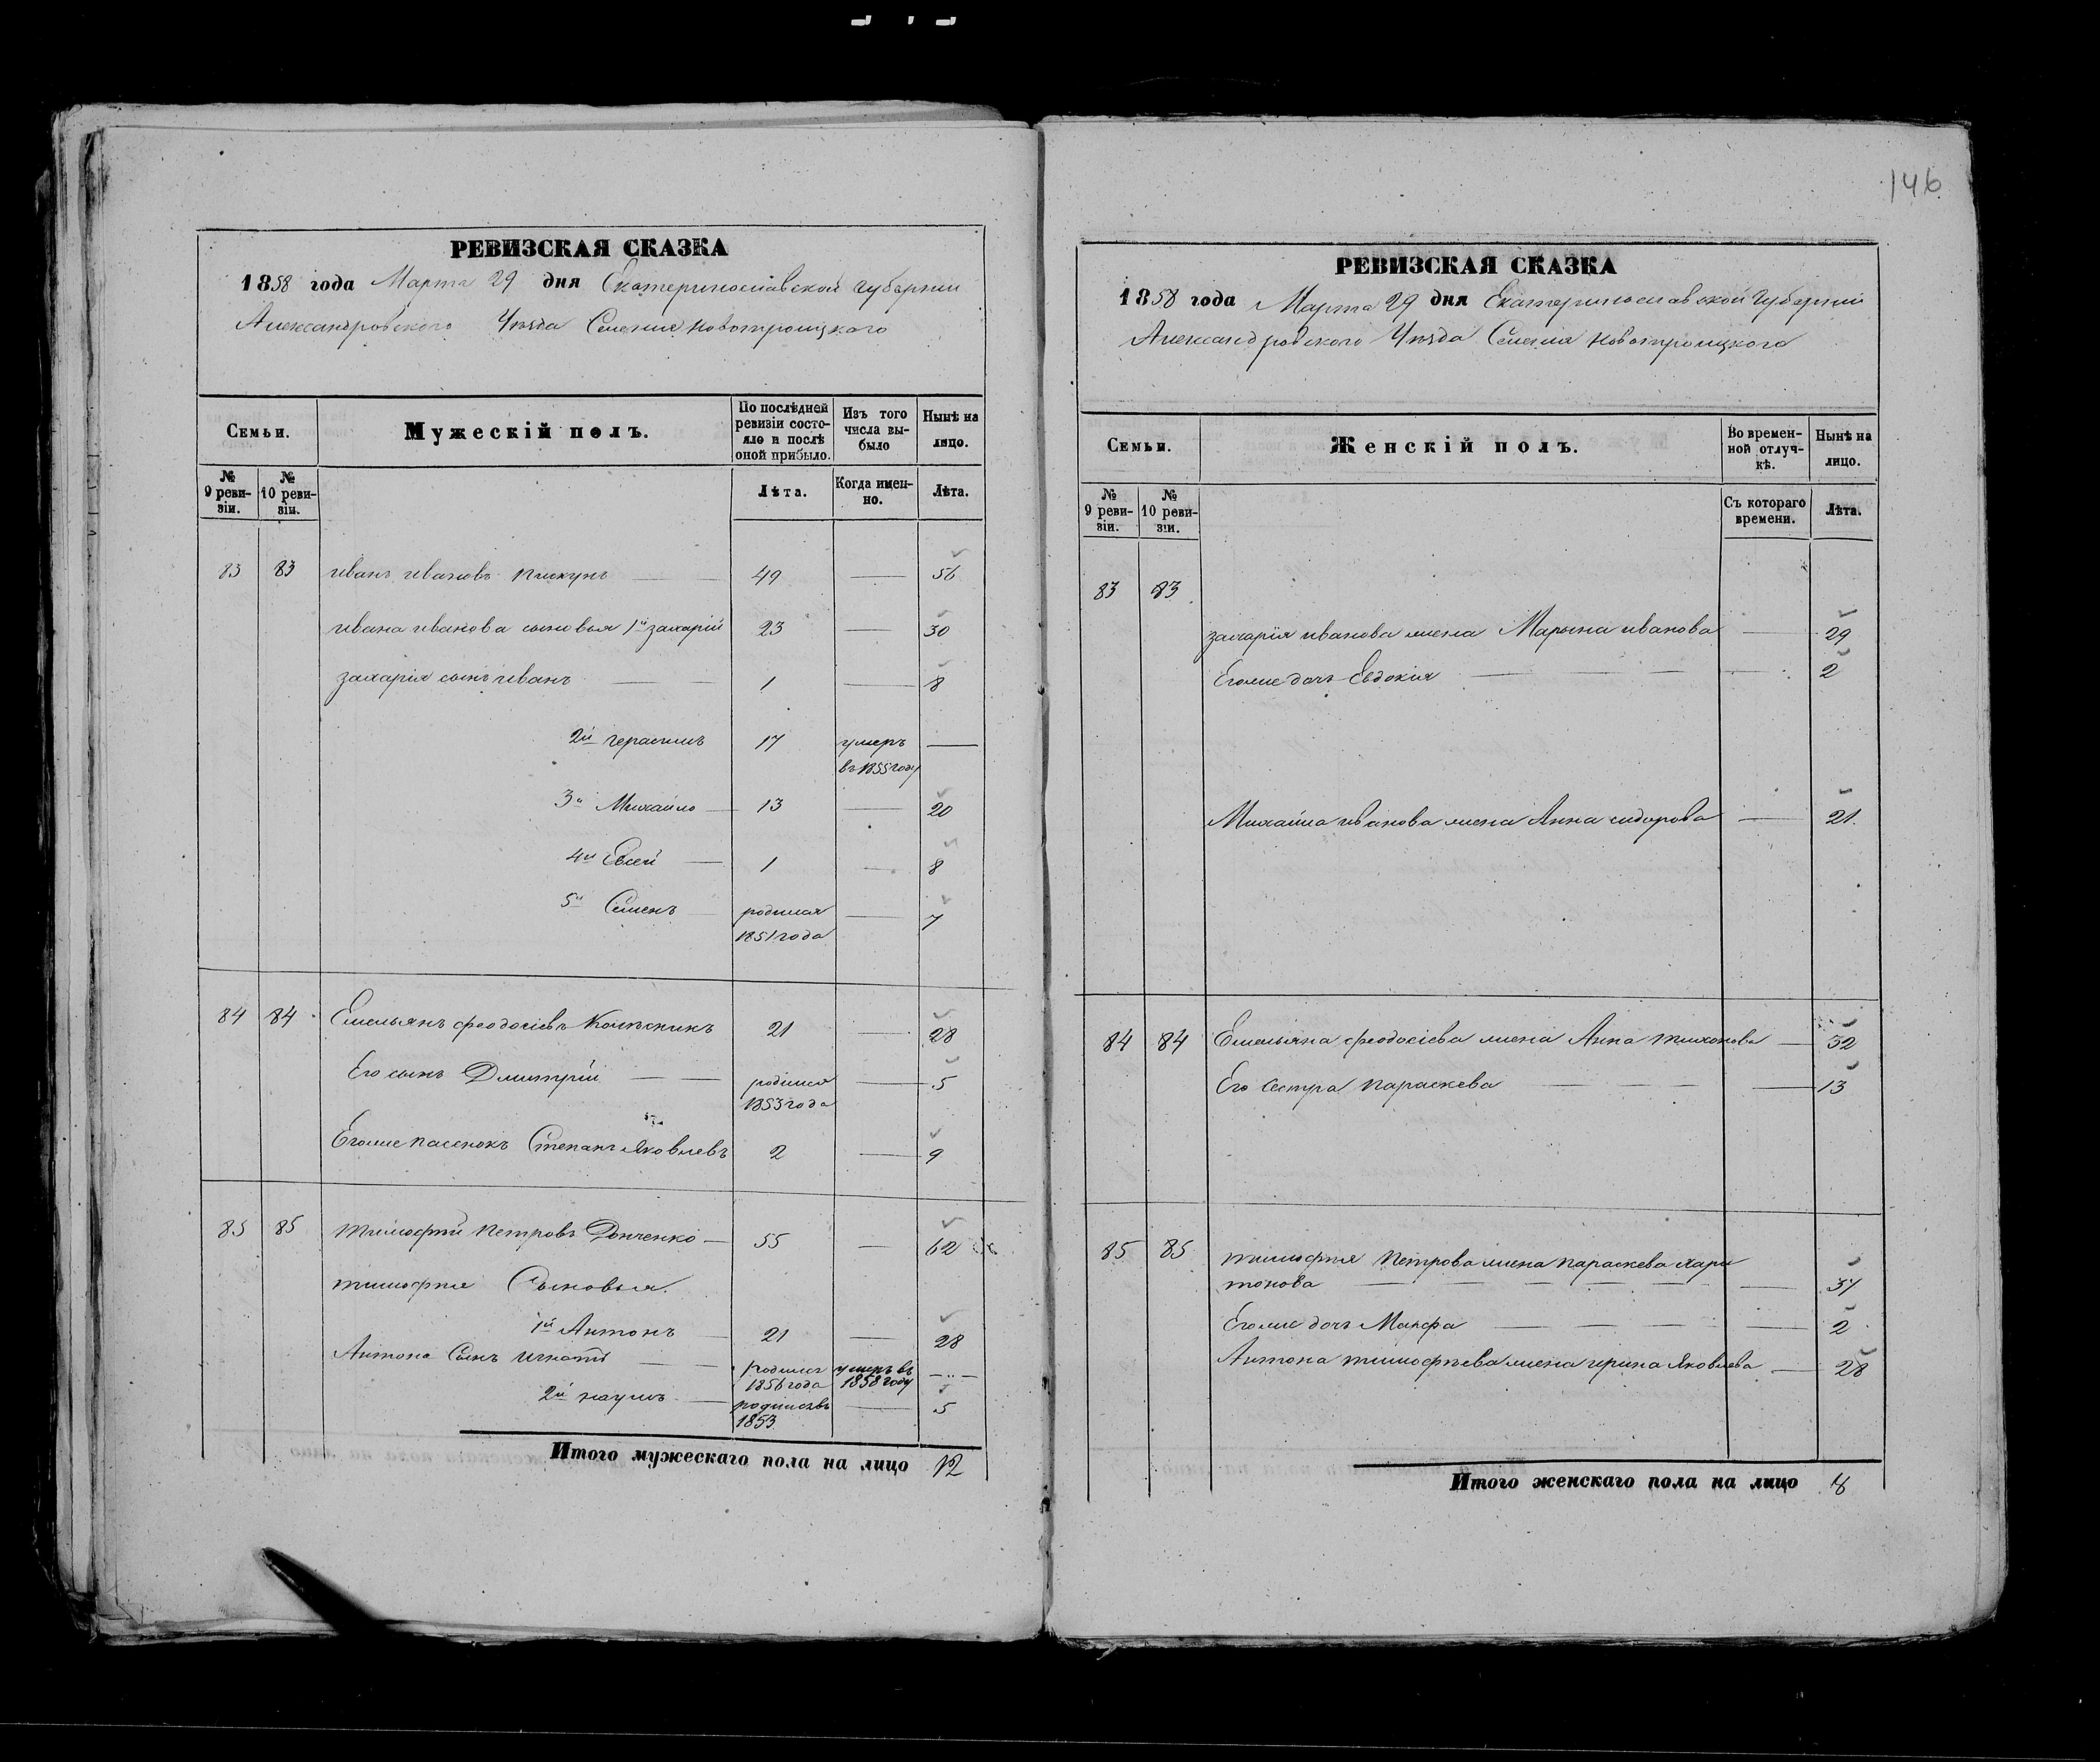 146
РЕВИЗСКАЯ СКАЗКА
1858 года Марта 29 дня Екатеринославской Губернии
Александровского Уѣзда Селения Новотроицкого
Семьи.
Мужескій полъ.
По послѣдней ревизіи состояло и послѣ оной прибыло.
Изъ того числа выбыло
Нынѣ на лицо.
№ 9 ревизіи.
№ 10 ревизіи.
Лѣта.
Когда именно.
Лѣта.
83 83 иванъ ивановъ пискунъ — 49 — 56
ивана иванова сыновья 1й захарій 23 — 30
захария сынъ иванъ — 1 — 8
2й герасимъ 17 умеръ —
въ 1855 году
3й Михайло — 13 — 20
4й Евсей — 1 — 8
5й Семенъ — родился — 7
1851 года
84 84 Емельянъ феодосіевъ Колѣсникъ 21 — 28
Его сынъ Дмитрій — родился — 5
1853 года
Егоже пасенокъ Степанъ Яковлевъ 2 — 9
85 85 тимофѣй петровъ Донченко — 55 — 62
тимофея Сыновья.
1й Антонъ — 21 — 28
Антона Сынъ игнатъ — родился умеръ въ —
1856 года 1858 году
2й наумъ — родился въ — 5
1853
Итого мужескаго пола на лицо 12
РЕВИЗСКАЯ СКАЗКА
1858 года Марта 29 дня Екатеринославской Губернии
Александровского Уѣзда Селения Новотроицкого
Семьи.
Женскій полъ.
Во временной отлучкѣ.
Нынѣ на лицо.
№ 9 ревизіи.
№ 10 ревизіи.
Съ котораго времени.
Лѣта.
83 83
захарія иванова жена Марьина иванова — 29
Егоже дочь Евдокия — 2
Михайла иванова жена Анна сидорова — 21
84 84 Емельяна феодосіева жена Анна тихонова — 32
Его Сестра параскева — 13
85 85 тимофея Петрова жена параскева хари
тонова — 37
Егоже дочь Макфа — 2
Антона тимофѣева жена ирина Яковлева — 28
Итого женскаго пола на лицо 8